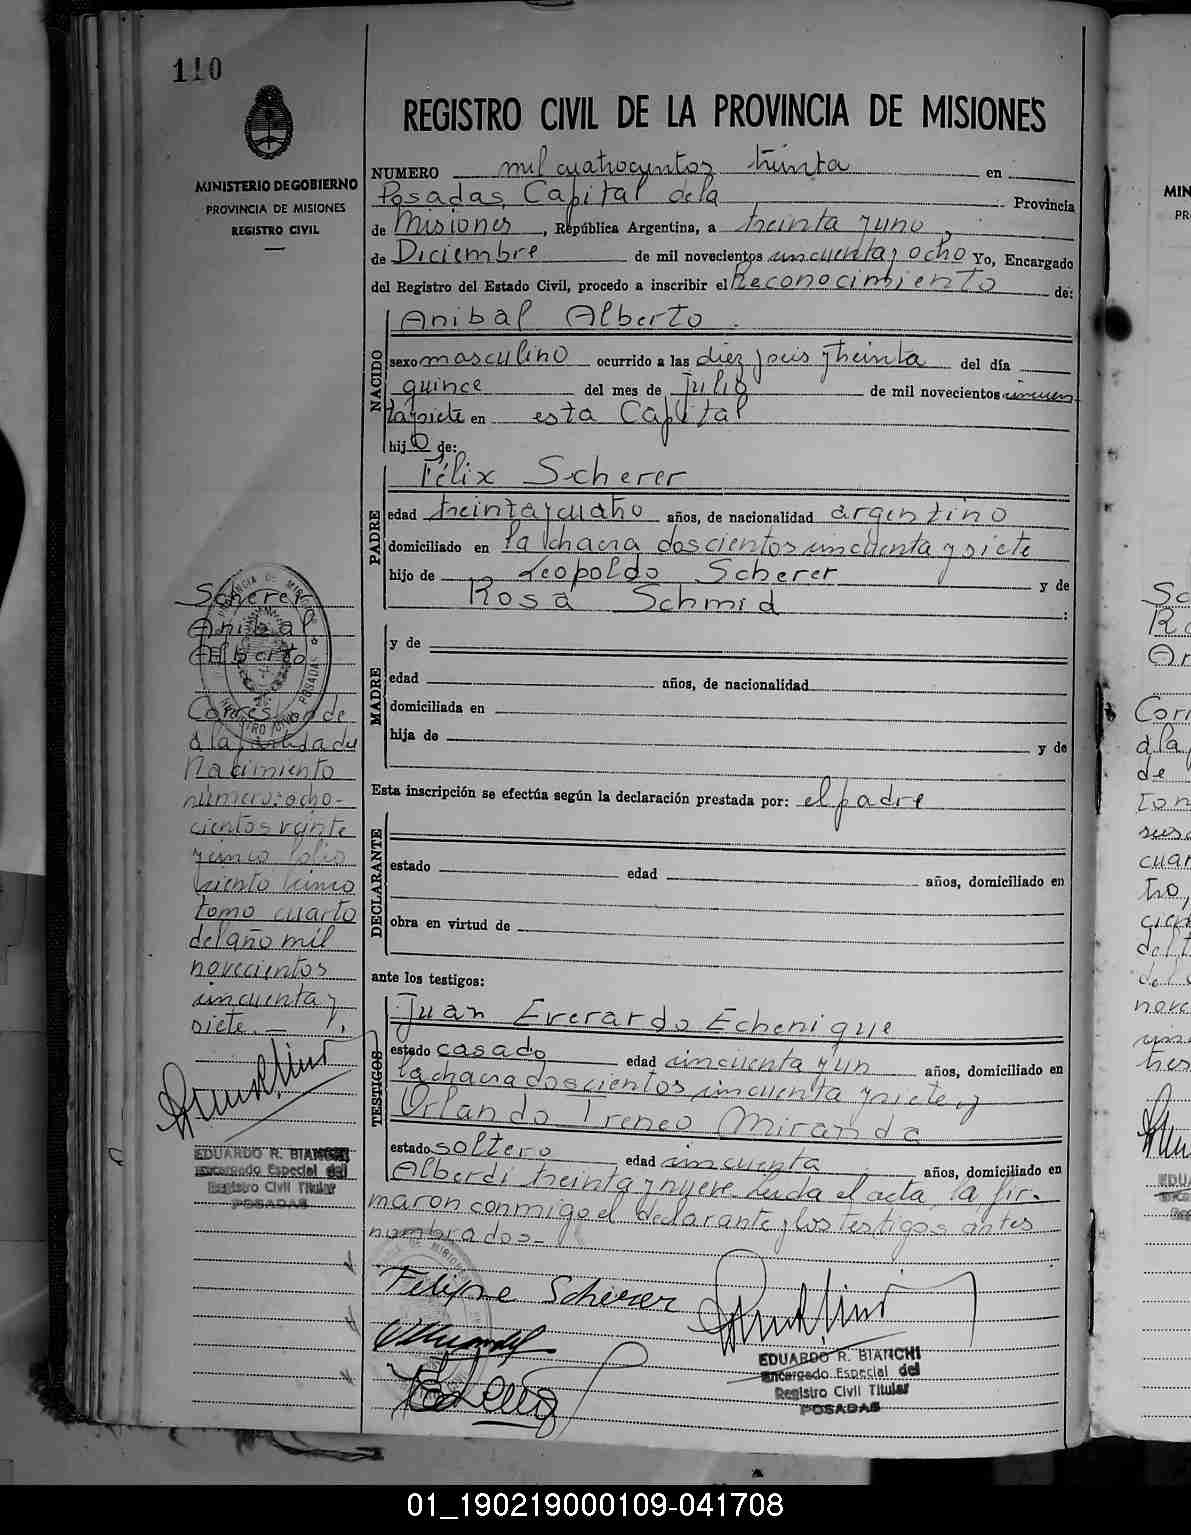 110
MINISTERIO DE GOBIERNO
PROVINCIA DE MISIONES
REGISTRO CIVIL
REGISTRO CIVIL DE LA PROVINCIA DE MISIONES
NUMERO mil cuatrocientos treinta en
Posadas, Capital de la Provincia
de Misiones, República Argentina, a treinta y uno,
de Diciembre de mil novecientos cincuenta y ocho Yo, Encargado
del Registro del Estado Civil, procedo a inscribir el Reconocimiento de:
NACIDO
Anibal Alberto.
sexo masculino ocurrido a las diez y seis y treinta del día
quince del mes de Julio de mil novecientos cincuen
ta y siete en esta Capital
hijo de:
PADRE
Félix Scherer
edad treinta y cuatro años, de nacionalidad argentino
domiciliado en la chacra doscientos cincuenta y siete
hijo de Leopoldo Scherer y de
Rosa Schmid :
MADRE
y de
edad años, de nacionalidad
domiciliada en
hija de y de
Esta inscripción se efectúa según la declaración prestada por: el padre
DECLARANTE
estado edad años, domiciliado en
obra en virtud de
ante los testigos:
TESTIGOS
Juan Everardo Echenique
estado casado edad cincuenta y un años, domiciliado en
la chacra doscientos cincuenta y siete y
Orlando Ireneo Miranda
estado soltero edad cincuenta años, domiciliado en
Alberdi treinta y nueve. Leida el acta, la fir-
maron conmigo el declarante y los testigos antes
nombrados.-
Felipe Scherer
EDUARDO R. BIANCHI
Encargado Especial del
Registro Civil Titular
POSADAS
Scherer
Anibal
Alberto
Corresponde
a la partida de
Nacimiento
número: ocho-
cientos veinte
y cinco folio
ciento cinco
tomo cuarto
del año mil
novecientos
cincuenta y
siete.-
EDUARDO R. BIANCHI
Encargado Especial del
Registro Civil Titular
POSADAS
MIN
PR
Corr
a la
de
Tom
cuar
tro,
del
nove
tres
01_190219000109-041708